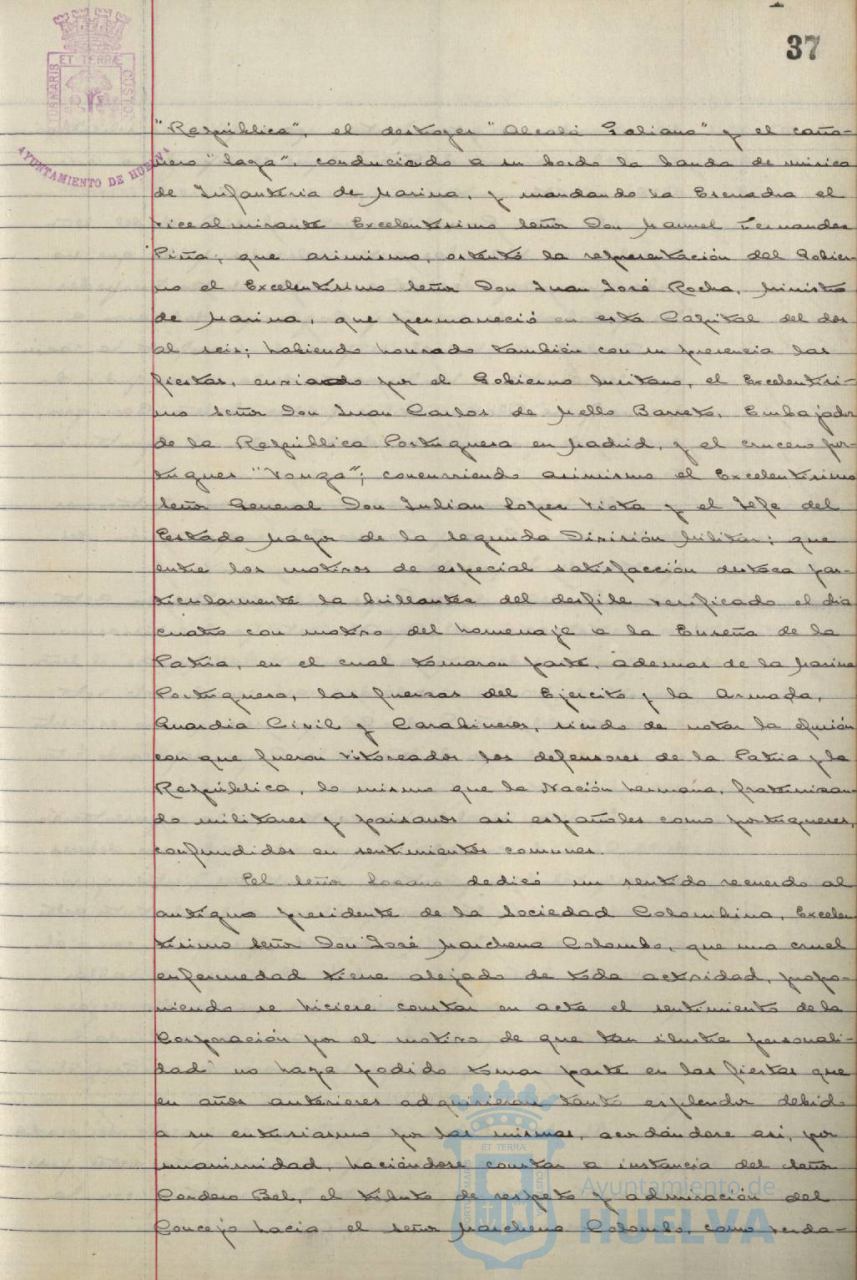 37
ET TERRA
AYUNTAMIENTO DE HUELVA
"República", el destroyer "Alcalá Galiano" y el caño-
nero "Laya", conduciendo a su bordo la banda de música
de Infantería de Marina, y mandando la Escuadra el
Vicealmirante Excelentísimo Señor Don Manuel Fernandez
Piña, que asimismo, ostentó la representación del Gobier-
no el Excelentísimo Señor Don Juan José Rocha, Ministro
de Marina, que permaneció en esta Capital del dos
al seis; habiendo honrado también con su presencia las
fiestas, enviado por el Gobierno lusitano, el Excelentísi-
mo Señor Don Juan Carlos de Mello Barreto, Embajador
de la República Portuguesa en Madrid, y el crucero por-
tugues "Vouga"; concurriendo asimismo el Excelentísimo
Señor General Don Julian Lopez Viota y el Jefe del
Estado Mayor de la Segunda División Militar; que
entre los motivos de especial satisfacción destaca par-
ticularmente la brillantez del desfile verificado el dia
cuatro con motivo del homenaje a la Enseña de la
Patria, en el cual tomaron parte, ademas de la Marina
Portuguesa, las fuerzas del Ejercito y la Armada,
Guardia Civil y Carabineros, siendo de notar la efusión
con que fueron vitoreados los defensores de la Patria y la
República, lo mismo que la Nación hermana, fraternizan-
do militares y paisanos asi españoles como portugueses,
confundidos en sentimientos comunes.
El Señor Lozano dedicó un sentido recuerdo al
antiguo presidente de la Sociedad Colombina, Excelen-
tísimo Señor Don José Marchena Colombo, que una cruel
enfermedad tiene alejado de toda actividad, propo-
niendo se hiciese constar en acta el sentimiento de la
Corporación por el motivo de que tan ilustre personali-
dad no haya podido tomar parte en las fiestas que
en años anteriores adquirieron tanto esplendor debido
a su entusiasmo por las mismas, acordándose asi, por
unanimidad, haciéndose constar a instancia del Señor
Cordero Bel, el tributo de respeto y admiración del
Concejo hacia el señor Marchena Colombo, como verda-
Ayuntamiento de
HUELVA